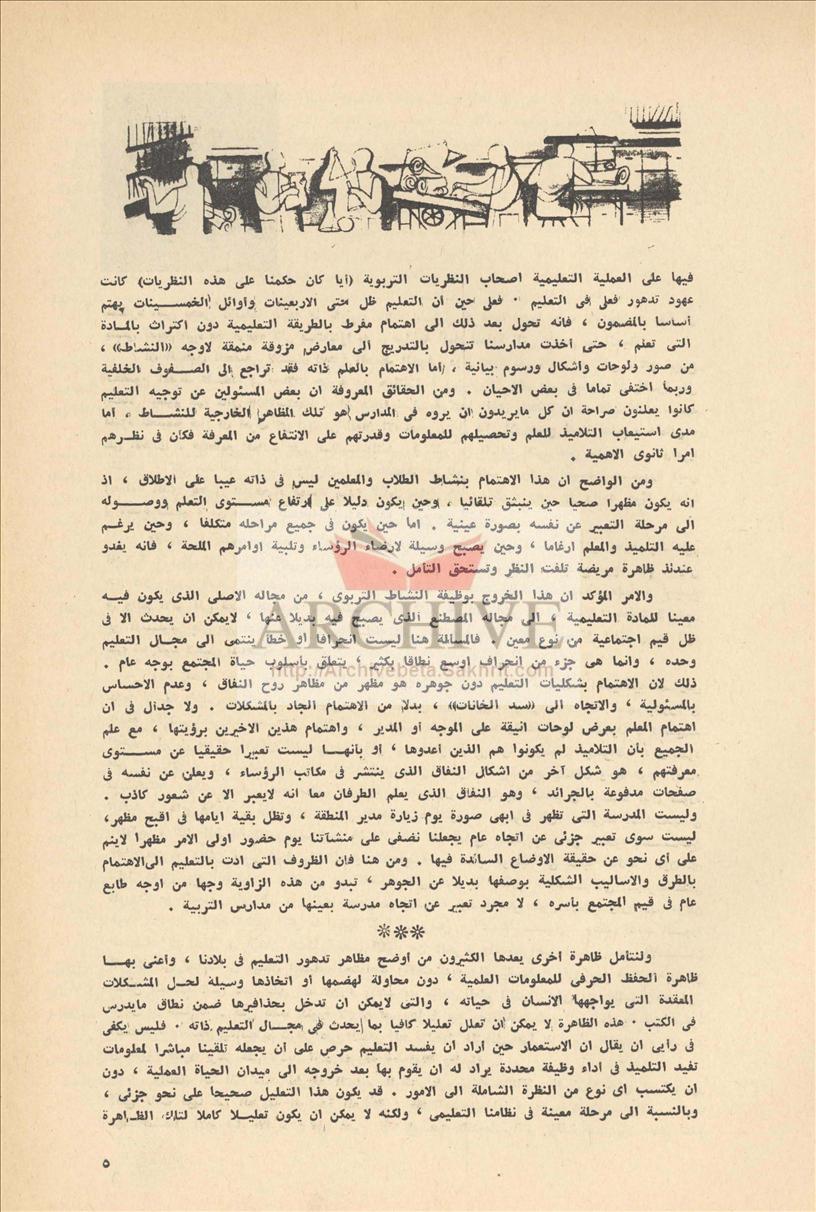 فيها على العملية التعليمية أصحاب النظريات التربوية (أيا كان حكمنا على هذه النظريات) كانت
عهود تدهور فعلى فى التعليم . فعلى حين أن التعليم ظل حتى الاربعينات وأوائل الخمســينات يهتم
أساسا بالمضمون ، فانه تحول بعد ذلك الى اهتمام مفرط بالطريقة التعليمية دون اكتراث بالمـادة
التى تعلم ، حتى أخذت مدارسنا تتحول بالتدريج الى معارض مزوقة منمقة لاوجه «النشاط» ،
من صور ولوحات وأشكال ورسوم بيانية ، أما الاهتمام بالعلم ذاته فقد تراجع الى الصـفوف الخلفية
وربما اختفى تماما فى بعض الاحيان . ومن الحقائق المعروفة ان بعض المسئولين عن توجيه التعليم
كانوا يعلنون صراحة ان كل مايريدون ان يروه فى المدارس هو تلك المظاهر الخارجية للنشــاط ، أما
مدى استيعاب التلاميذ للعلم وتحصيلهم للمعلومات وقدرتهم على الانتفاع من المعرفة فكان فى نظـرهم
امرا ثانوى الاهمية .
ومن الواضح ان هذا الاهتمام بنشاط الطلاب والمعلمين ليس فى ذاته عيبا على الاطلاق ، اذ
انه يكون مظهرا صحيا حين ينبثق تلقائيا ، وحين يكون دليلا على ارتفاع مســتوى التعلم ووصـوله
الى مرحلة التعبير عن نفسه بصورة عينية . اما حين يكون فى جميع مراحله متكلفا ، وحين يرغـم
عليه التلميذ والمعلم ارغاما ، وحين يصبح وسيلة لارضاء الرؤساء وتلبية اوامرهم الملحة ، فانه يغدو
عندئذ ظاهرة مريضة تلفت النظر وتستحق التأمل .
والامر المؤكد ان هذا الخروج بوظيفة النشاط التربوى ، من مجاله الاصلى الذى يكون فيـه
معينا للمادة التعليمية ، الى مجاله المصطنع الذى يصبح فيه بديلا عنها ، لايمكن ان يحدث الا فى
ظل قيم اجتماعية من نوع معين . فالمسألة هنا ليست انحرافا أو خطأ ينتمى الى مجـال التعليم
وحده ، وانما هى جزء من انحراف اوسع نطاقا بكثير ، يتعلق بأسلوب حياة المجتمع بوجه عام .
ذلك لان الاهتمام بشكليات التعليم دون جوهره هو مظهر من مظاهر روح النفاق ، وعدم الاحساس
بالمسئولية ، والاتجاه الى «سد الخانات» ، بدلا من الاهتمام الجاد بالمشكلات . ولا جدال فى ان
اهتمام المعلم بعرض لوحات انيقة على الموجه أو المدير ، واهتمام هذين الاخيرين برؤيتها ، مع علم
الجميع بأن التلاميذ لم يكونوا هم الذين أعدوها ، أو بأنهــا ليست تعبيرا حقيقيا عن مســتوى
معرفتهم ، هو شكل آخر من اشكال النفاق الذى ينتشر فى مكاتب الرؤساء ، ويعلن عن نفسه فى
صفحات مدفوعة بالجرائد ، وهو النفاق الذى يعلم الطرفان معا انه لايعبر الا عن شعور كاذب .
وليست المدرسة التى تظهر فى ابهى صورة يوم زيارة مدير المنطقة ، وتظل بقية ايامها فى اقبح مظهر،
ليست سوى تعبير جزئى عن اتجاه عام يجعلنا نضفى على منشآتنا يوم حضور اولى الامر مظهرا لاينم
على أى نحو عن حقيقة الاوضاع السائدة فيها . ومن هنا فان الظروف التى ادت بالتعليم الى الاهتمام
بالطرق والاساليب الشكلية بوصفها بديلا عن الجوهر ، تبدو من هذه الزاوية وجها من اوجه طابع
عام فى قيم المجتمع بأسره ، لا مجرد تعبير عن اتجاه مدرسة بعينها من مدارس التربية .
***
ولنتأمل ظاهرة أخرى يعدها الكثيرون من أوضح مظاهر تدهور التعليم فى بلادنا ، وأعنى بهــا
ظاهرة الحفظ الحرفى للمعلومات العلمية ، دون محاولة لهضمها أو اتخاذها وسيلة لحـل المشـكلات
المعقدة التى يواجهها الانسان فى حياته ، والتى لايمكن ان تدخل بحذافيرها ضمن نطاق مايدرس
فى الكتب . هذه الظاهرة لا يمكن أن تعلل تعليلا كافيا بما يحدث فى مجـال التعليم ذاته . فليس يكفى
فى رأيى ان يقال ان الاستعمار حين أراد أن يفسد التعليم حرص على أن يجعله تلقينا مباشرا لمعلومات
تفيد التلميذ فى اداء وظيفة محددة يراد له ان يقوم بها بعد خروجه الى ميدان الحياة العملية ، دون
ان يكتسب اى نوع من النظرة الشاملة الى الامور . قد يكون هذا التعليل صحيحا على نحو جزئى ،
وبالنسبة الى مرحلة معينة فى نظامنا التعليمى ، ولكنه لا يمكن ان يكون تعليـلا كاملا لتلك الظـاهرة
٥
ARCHIVE
http://Archivebeta.Sakhrit.com